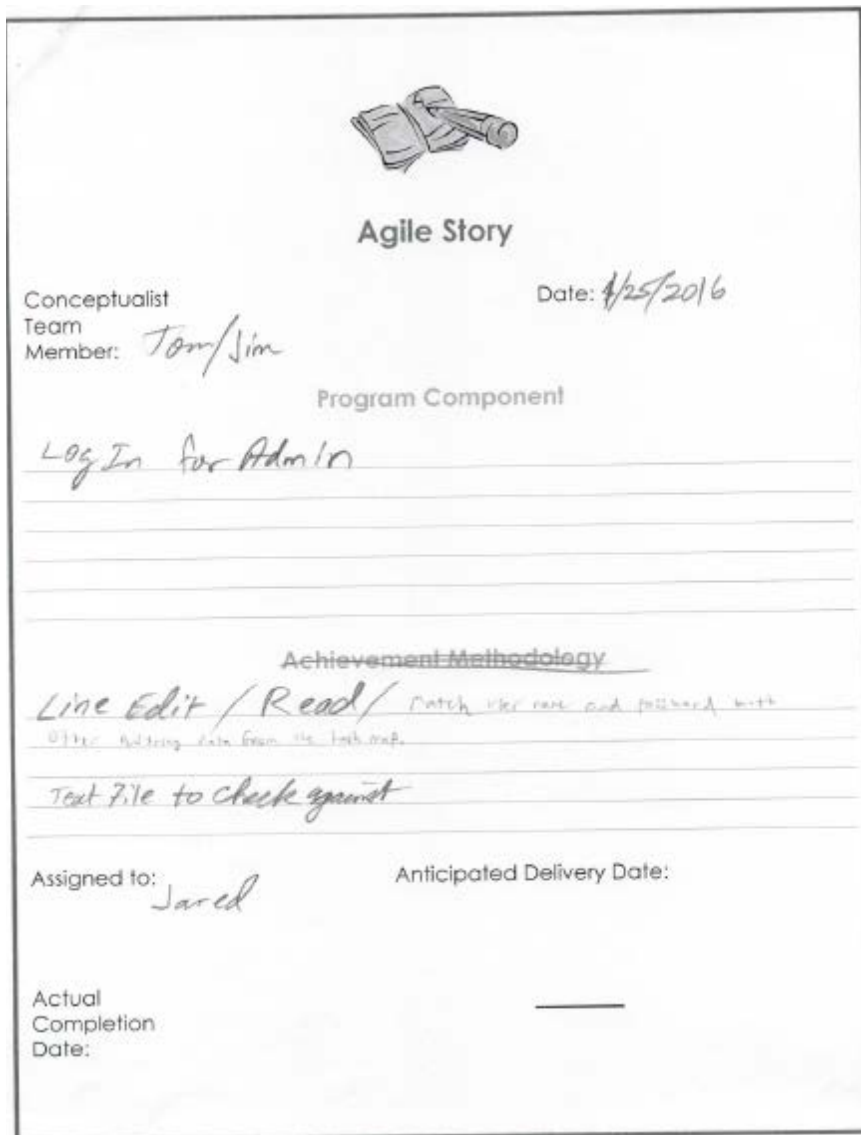 Agile Story
Conceptualist
Team
Member: Tom/Jim
Date: 1/25/2016
Program Component
Log In for Admin
Achievement Methodology
Line Edit / Read / Match user name and password with
data from the hash map.
Text File to Check against
Assigned to: Jared
Anticipated Delivery Date:
Actual
Completion
Date: